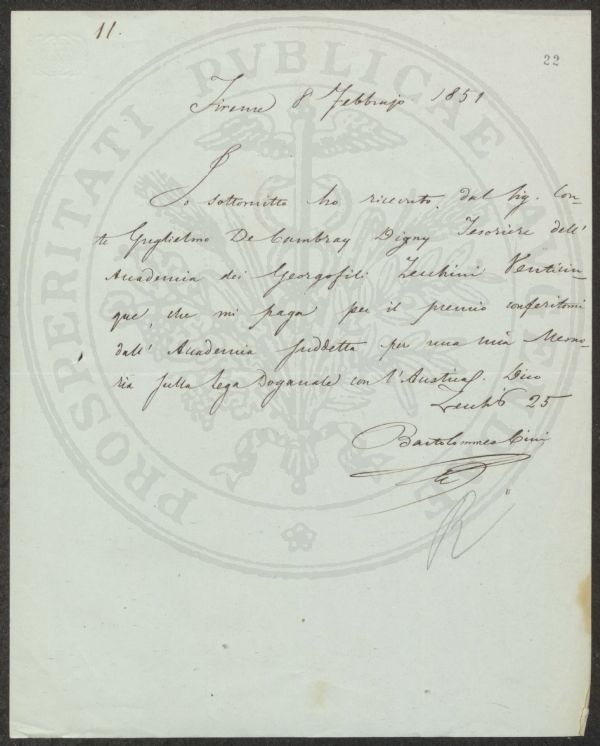 11.
22
Firenze 8 Febbrajo 1851
Io sottoscritto ho ricevuto dal Sig. Con-
te Guglielmo De Cambray Digny Tesoriere dell'
Accademia dei Georgofili Zecchini Venticin-
que, che mi paga per il premio conferitomi
dall' Accademia suddetta per una mia Memo-
ria sulla Lega Doganale con l'Austria. Dico
Zecchi 25
Bartolommeo Cini
R
PROSPERITATI PVBLICAE